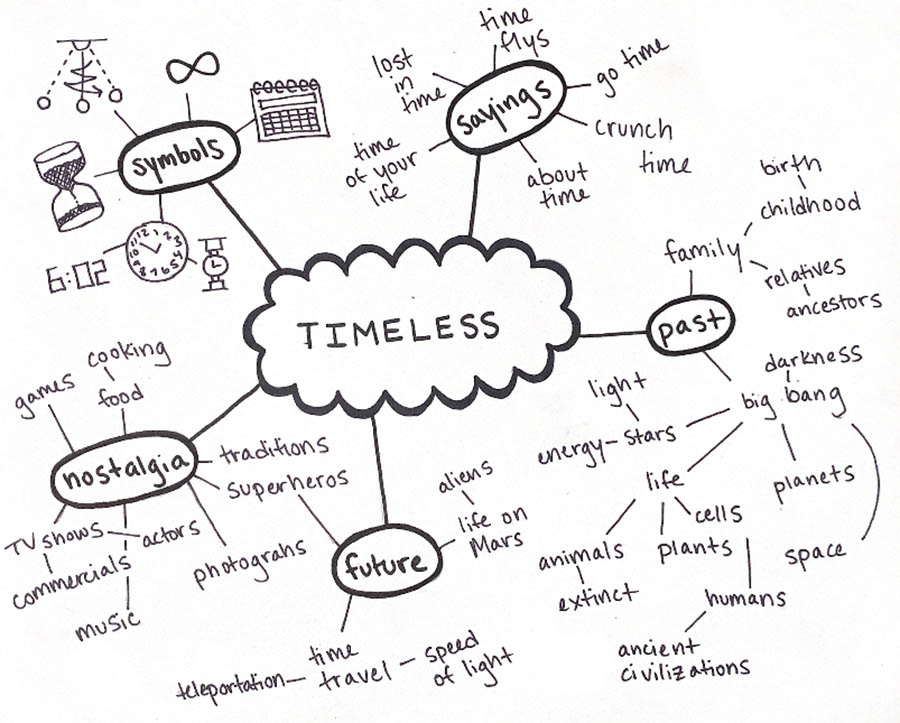 symbols
12
1
2
3
4
5
6
7
8
9
10
11
6:02
sayings
time
flys
go time
crunch
time
about
time
time
of your
life
lost
in
time
TIMELESS
past
family
birth
childhood
relatives
ancestors
big bang
darkness
light
energy - stars
planets
space
life
cells
plants
animals
extinct
humans
ancient
civilizations
nostalgia
games
cooking
food
traditions
superheros
photograhs
TV shows
actors
commercials
music
future
aliens
life on
Mars
time
travel
teleportation
speed
of light